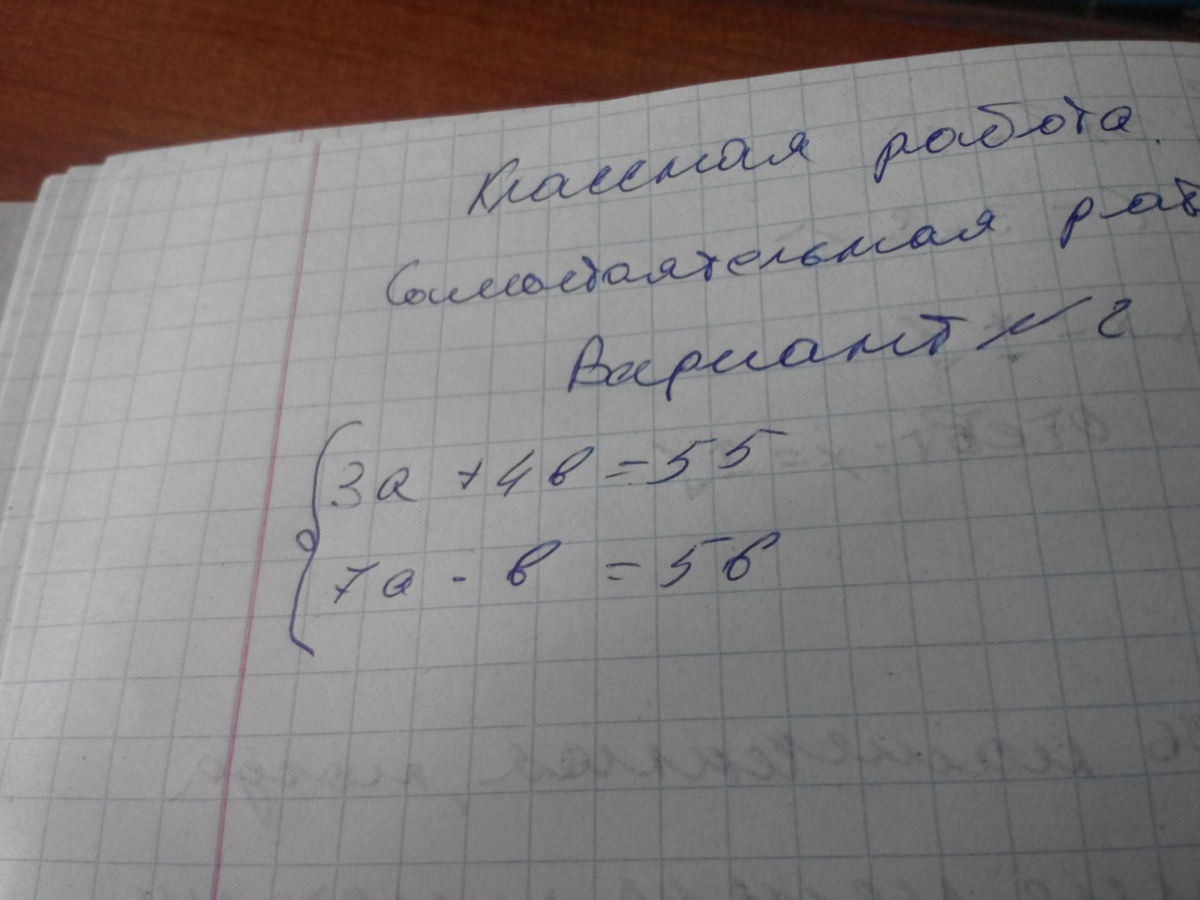 Классная работа.
Самостоятельная раб
Вариант №2
3а + 4в = 55
7а - в = 56